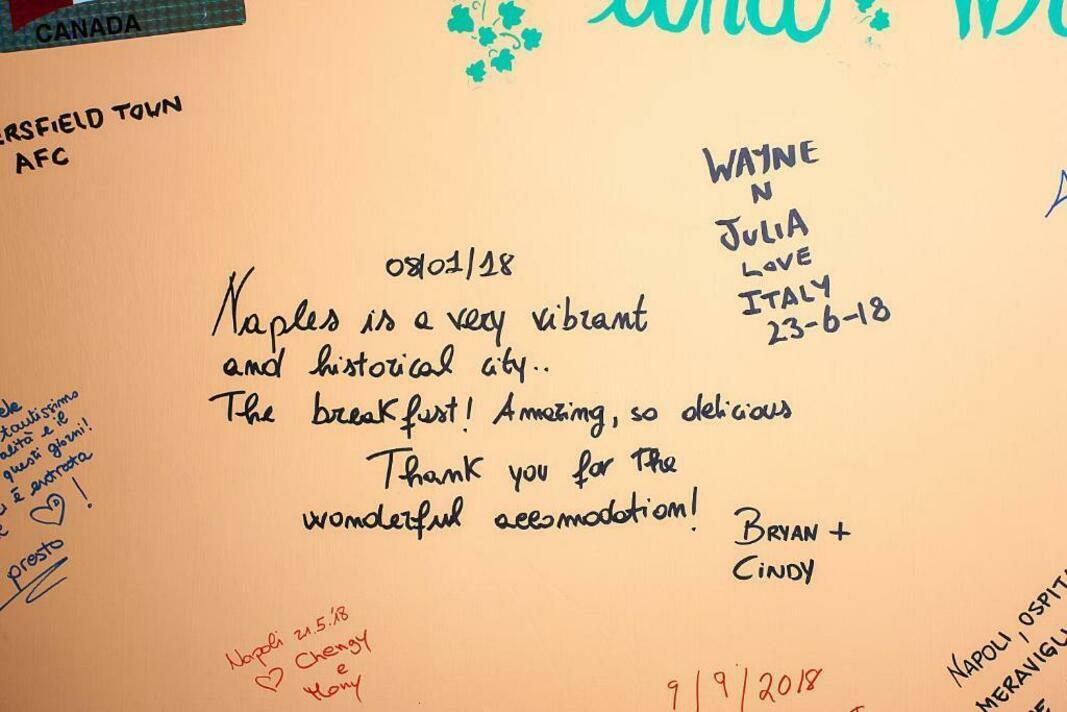 CANADA
and
ERSFIELD TOWN
AFC
WAYNE
N
JULIA
LOVE
ITALY
23-6-18
08/01/18
Naples is a very vibrant
and historical city..
The breakfast! Amazing, so delicious
Thank you for the
wonderful accomodation!
BRYAN +
CINDY
questi giorni!
è entrata
presto
Napoli 21.5.'18
♡ Chengy
e
9/9/2018
NAPOLI, OSPIT
MERAVIGL